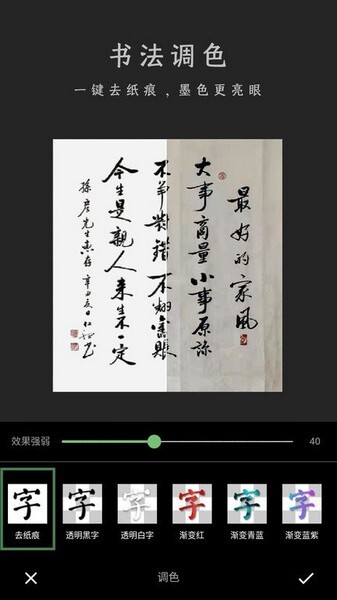 书法调色
一键去纸痕，墨色更亮眼
最好的家风
大事商量小事原谅
不争對錯不翻舊賬
今生是親人来生不一定
先生惠存辛丑
效果强弱
40
字 字 字 字 字 字
去纸痕 透明黑字 透明白字 渐变红 渐变青蓝 渐变蓝紫
调色